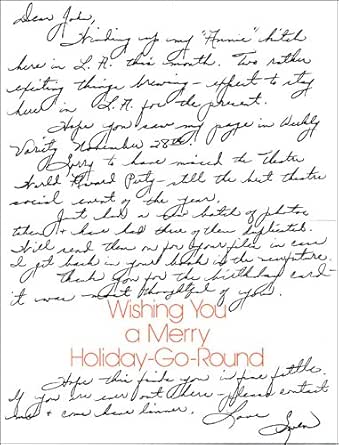 Dear John,
Winding up my "Annie" hitch
here in L.A. this month. Two rather
exciting things brewing - expect to stay
here in L.A. for the present.
Hope you saw my page in Weekly
Variety November 28th!
Sorry to have missed the Theatre
World Award Party - still the best theatre
social event of the year.
Just had a new batch of photos
taken & have had three of them duplicated.
Will send them on for your files in case
I get back in your book in the
Thank you for the birthday card -
it was most thoughtful of you.
Wishing You
a Merry
Holiday-Go-Round
Hope this finds you in fine fettle.
If you are ever out there - please contact
me & come have dinner. Love